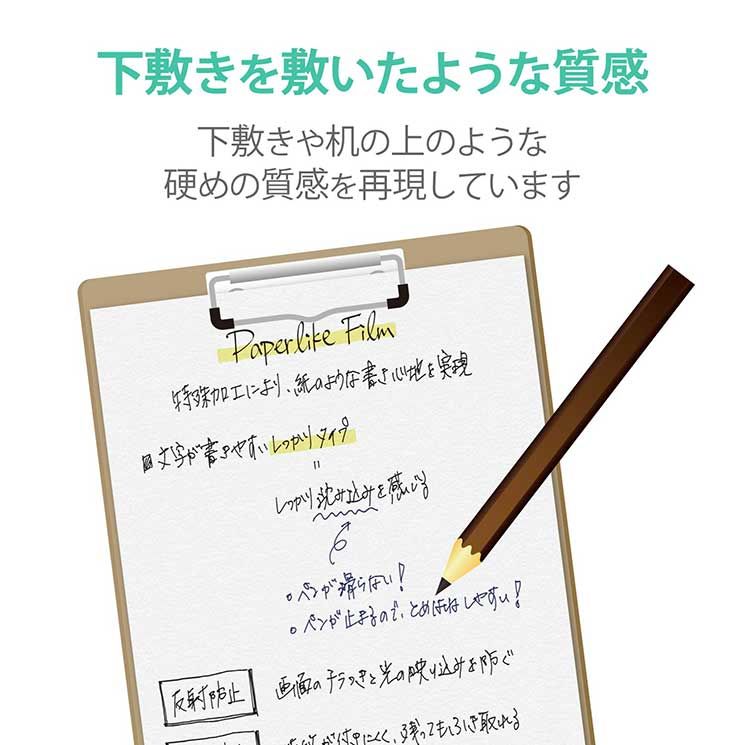 下敷きを敷いたような質感
下敷きや机の上のような
硬めの質感を再現しています
Paperlike Film
特殊加工により、紙のような書き心地を実現
文字が書きやすいしっかりタイプ
=
しっかり沈み込みを感じる
○ペンが滑らない!
○ペンが止まるので、とめはねしやすい!
反射防止 画面のチラつきと光の映り込みを防ぐ
が付きにくく、残ってもふき取れる